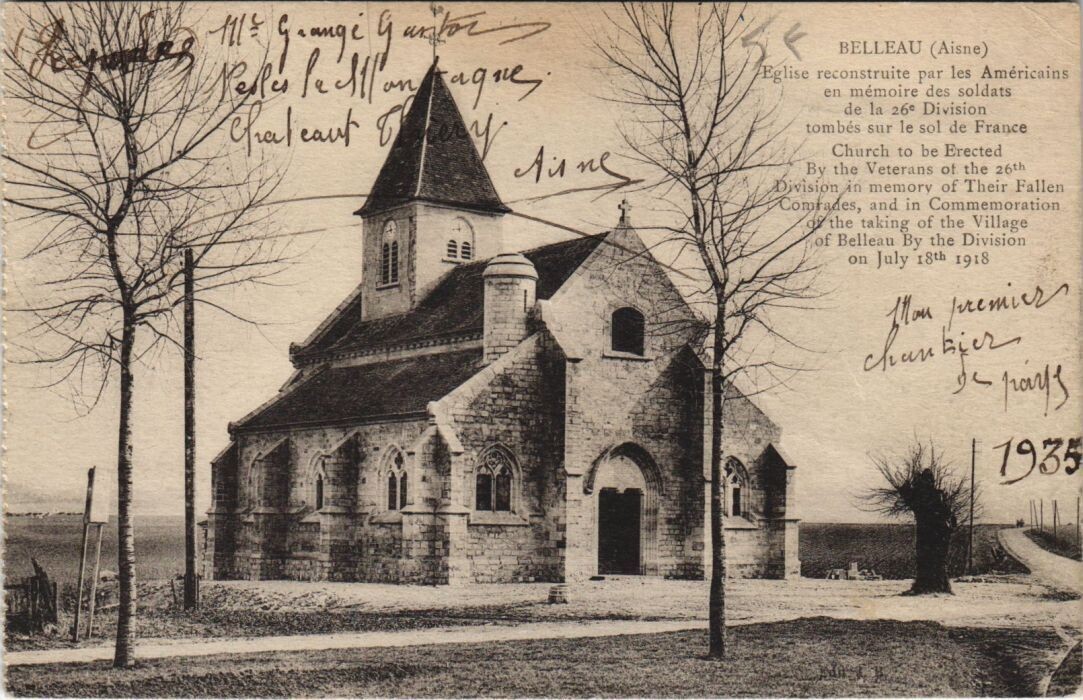 Mr Grangé Gaston
Nesles la Montagne
Chateaut Thiery
Aisne
5 €
BELLEAU (Aisne)
Eglise reconstruite par les Américains
en mémoire des soldats
de la 26e Division
tombés sur le sol de France
Church to be Erected
By the Veterans of the 26th
Division in memory of Their Fallen
Comrades, and in Commemoration
of the taking of the Village
of Belleau By the Division
on July 18th 1918
Mon premier
chantier
de pays
1935